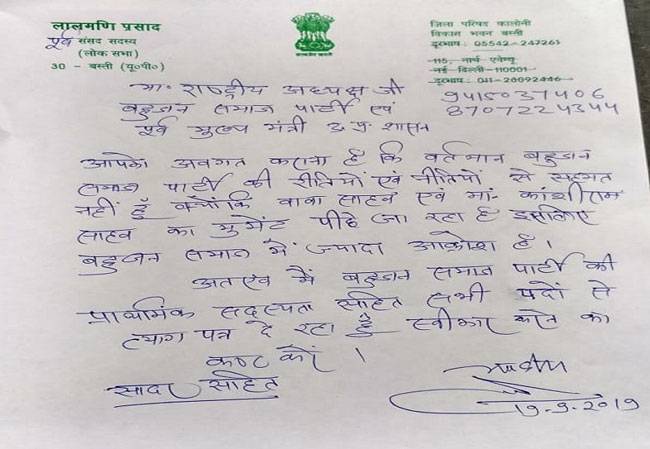 लालमणि प्रसाद
पूर्व संसद सदस्य
(लोक सभा)
30 - बस्ती (यू०पी०)
जिला परिषद कालोनी
विकास भवन बस्ती
दूरभाष : 05542-247261
115, नार्थ एवेन्यू
नई दिल्ली-110001
दूरभाष : 011-23092446
9415037406
8707224344
मा. राष्ट्रीय अध्यक्ष जी
बहुजन समाज पार्टी एवं
पूर्व मुख्य मंत्री उ.प्र. शासन
आपको अवगत कराना है कि वर्तमान बहुजन
समाज पार्टी की रीतियों एवं नीतियों से सहमत
नहीं हूँ क्योंकि बाबा साहब एवं मा. कांशीराम
साहब का मुमेंट पीछे जा रहा है इसलिए
बहुजन समाज में ज्यादा आक्रोश है।
अतएव मैं बहुजन समाज पार्टी की
प्राथमिक सदस्यता सहित सभी पदों से
त्याग पत्र दे रहा हूँ स्वीकार करने का
कष्ट करें।
सादर सहित
19-9-2019